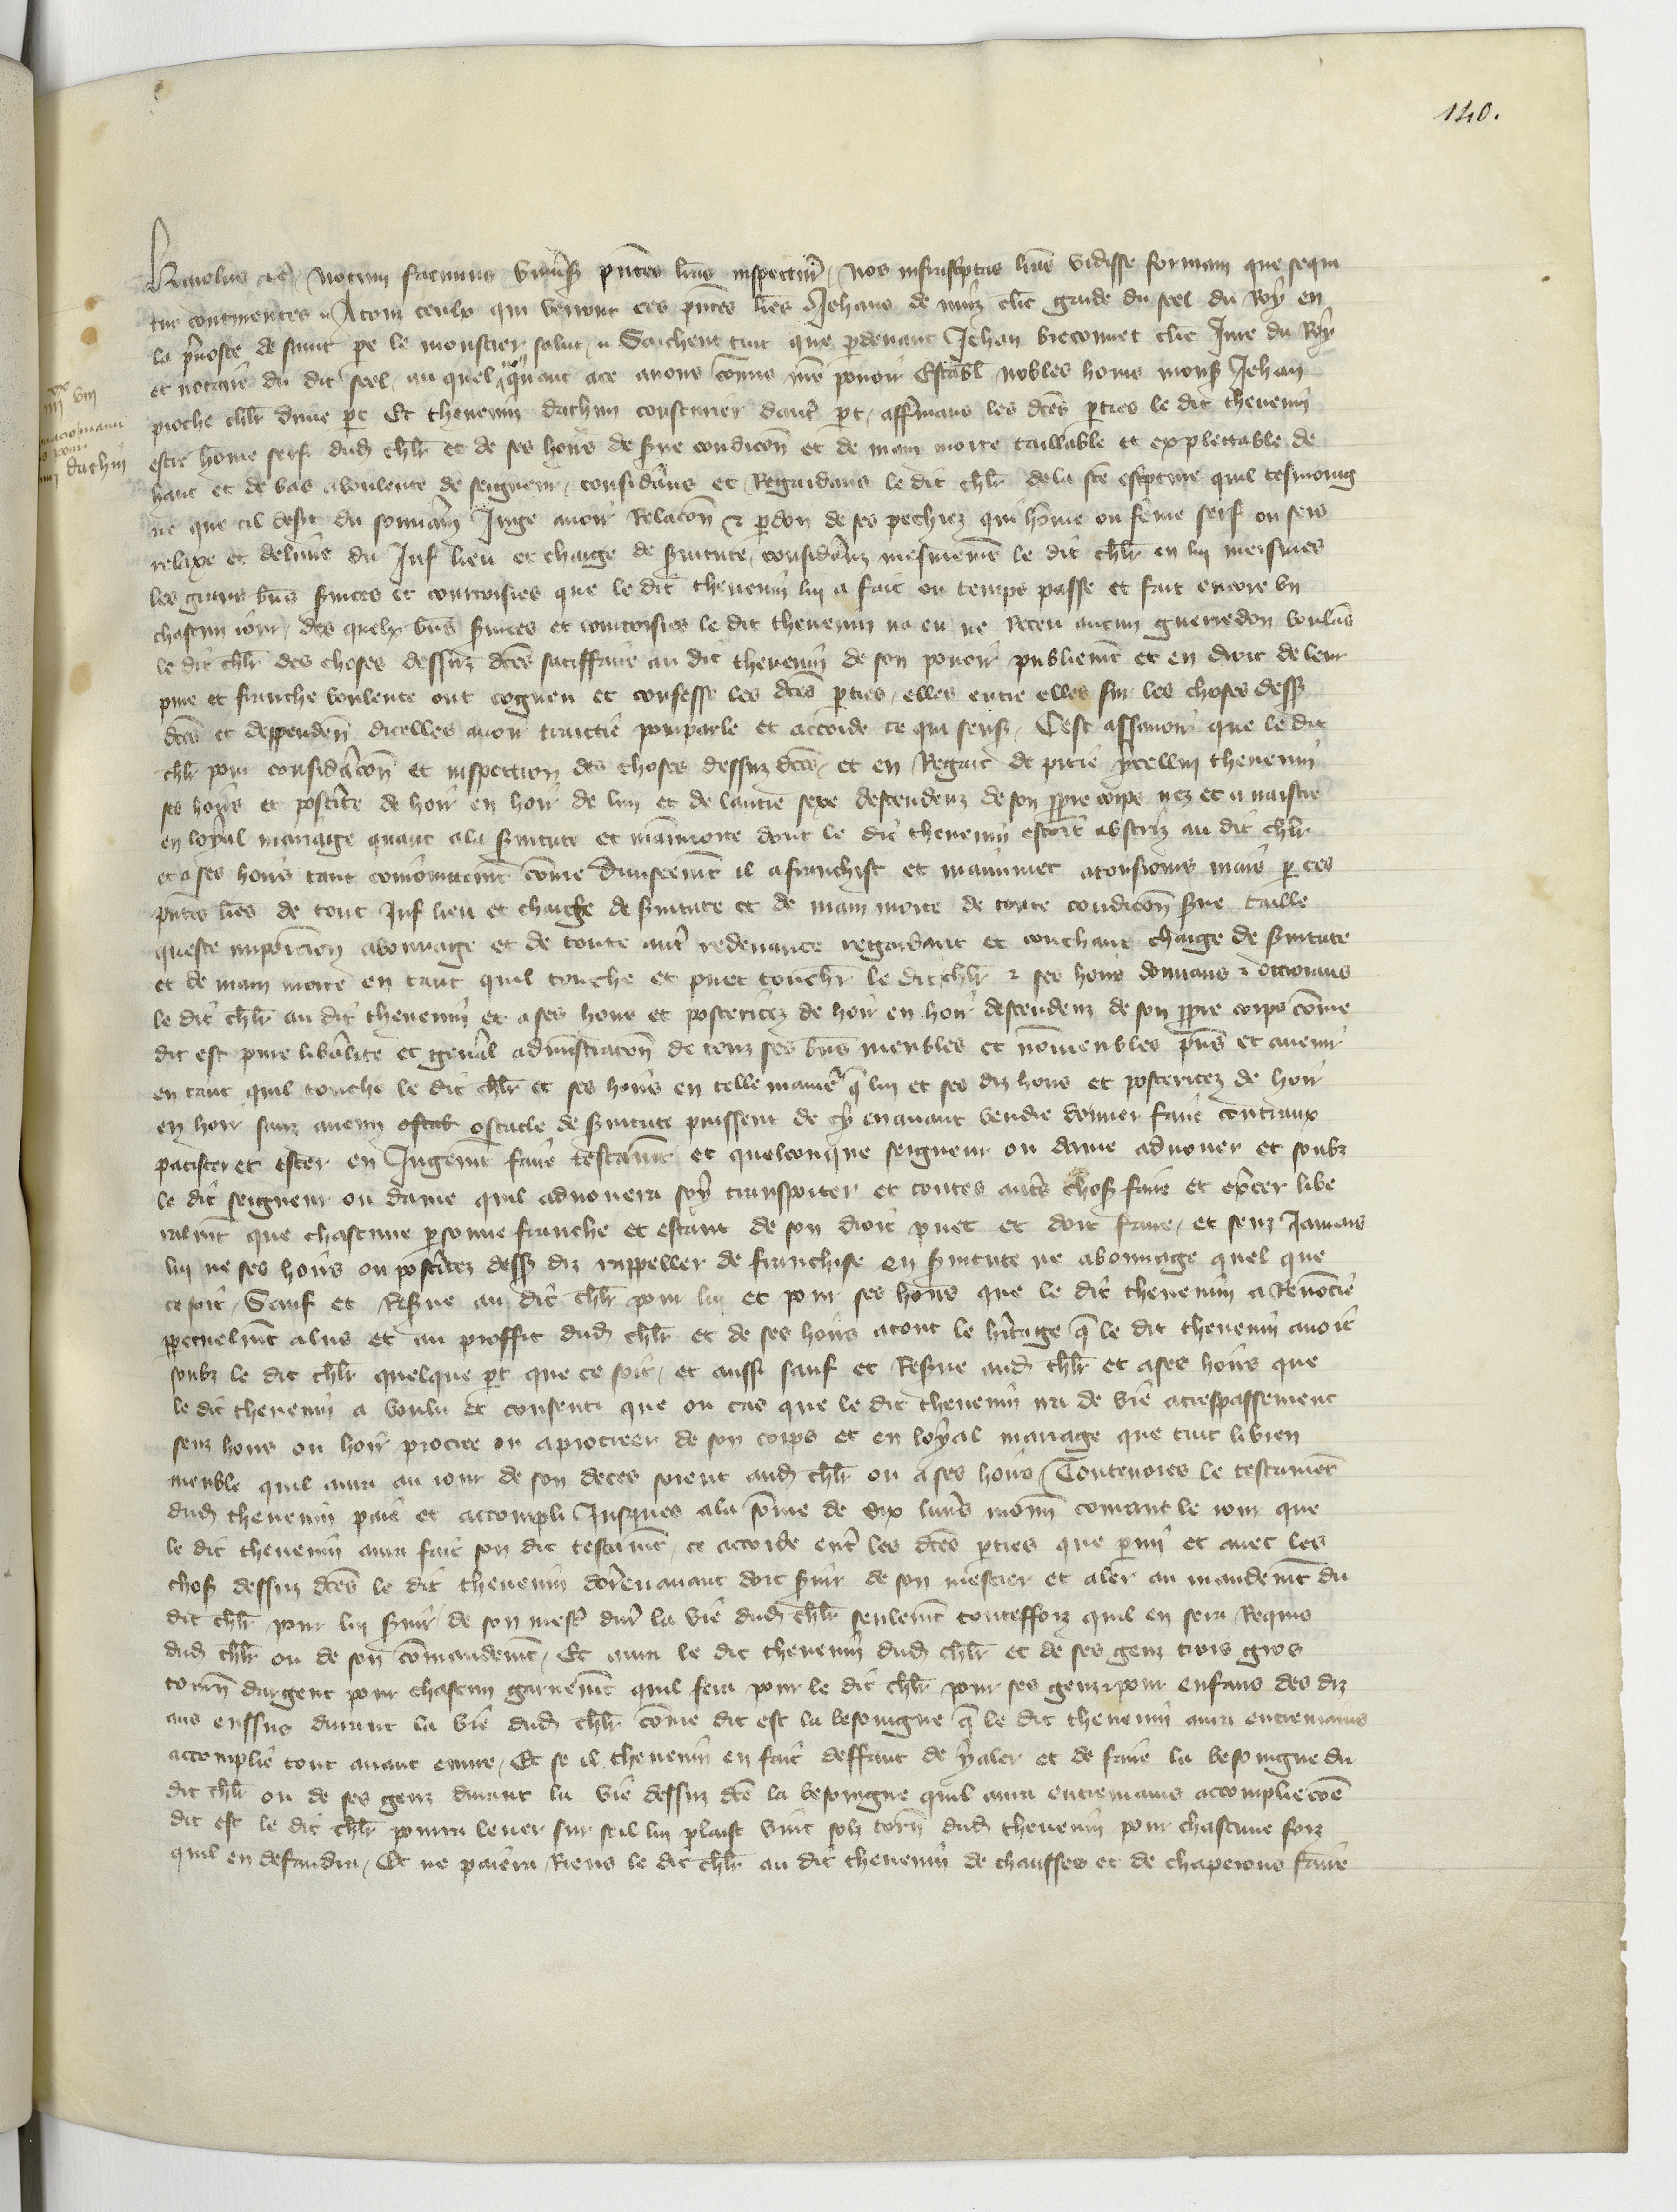 140.
Karolus etc̃ Notum facimus universis pñtes lr̃as inspecturis nos infrascriptas lr̃as vidisse formam que sequi
tur continentes A touz ceulx qui verront ces pñtes lr̃es Jehans de clerc garde du seel du Roy en
la prevoste de saint pe le monstier salut Saichent tuit que pardevant Jehan viconnet clerc Jure du Roy
et notaire du dit seel au quel quant ace avons commis nr̃e povoir Establ nobles homs mons Jehan
pioche chlr dune part Et thevenin dachun cousturier dautre part affermans les dc̃es parties le dit thevenin
estre home serf dud chlr et de ses hoirs de serve condicion et de main morte taillable et explettable de
haut et de bas a voulente de seigneur considerans et Regardans le dit chlr dela ste escripture quil tesmoing
ne que cil desert du souverain Juge avoir Relacion et pardon de ses pechiez qui home ou feme serf ou sers
relaxe et delivre du Juf lieu et charge de servitute considerant mesmement le dit chlr en lui meismes
les grans bons services et courtoisies que le dit thevenin lui a fait ou temps passe et fait encore un
chascun iour des quelx bons services et courtoisies le dit thevenin na eu ne Receu aucun guerredon voulans
le dit chlr des choses dessuz dc̃es satiffaire au dit thevenin de son povoir publicment et en droit de leur
pure et franche voulente ont cogneu et confesse les dc̃es parties elles entre elles sur les choses dess
dc̃es et deppenden dicelles avoir traictie pourparle et accorde ce qui sensuit Cest assavoir que le dit
chlr pour consideracion et inspection des choses dessuz dc̃es et en Regart de pitie ycellui thevenin
ses hoirs et posterite de hoir en hoir de lun et de lautre sexe descendenz de son propre corps nez et a naistre
en loyal mariage quant ala servitute et mainmorte dont le dit thevenin estoit abstriz au dit chlr
et a ses hoirs tant conioinctement come diviseement il afranchist et manumet atousiours mais par ces
pñtes lr̃es de tout Juf lieu et charge de servitute et de main morte de toute condicion serve taille
queste imposicion abonnage et de toute autre redevance regardant et touchant charge de servitute
et de main morte en tant quil touche et puet toucher le dit chlr et ses hoirs donnans et ottroians
le dit chlr au dit thevenin et a ses hoirs et posteritez de hoir en hoir descendenz de son propre corps come
dit est pure liberalite et general administracion de touz ses biens meubles et nommeubles pñs et avenir
en tant quil touche le dit chlr et ses hoirs en telle maniere que lui et ses diz hoirs et posteritez de hoir
en hoir sanz aucun ostab ostacle de servitute puissent de cy enavant vendre donner faire contraux
patister et ester en Jugement faire testament et quelconque seigneur ou dame advouer et soubz
le dit seigneur ou dame quil advouera soy transporter et toutes autres choses faire et excer libe
ralment que chascune personne franche et estant de son droit puet et doit faire et senz Jamais
lui ne ses hoirs ou posteritez dess diz rappeller de franchise en servitute ne abonnage quel que
ce soit Sauf et Reserve au dit chlr pour lui et pour ses hoirs que le dit thevenin a Renoncie
perpetuelment a lus et au proffit dud chlr et de ses hoirs atout le heritage que le dit thevenin avoit
soubz le dit chlr quelque part que ce soit et aussi sauf et Reserve aud chlr et ases hoirs que
le dit thevenin a voulu et consenti que ou cas que le dit thevenin ira de vie atrespassement
senz hoirs ou hoir procree ou aprocreer de son corps et en loyal mariage que tuit li bien
meuble quil aura au iour de son deces soient aud chlr ou a ses hoirs Toutevoies le testament
dud thevenin paie et accompli Jusques ala some de dix livres monn corant le iour que
le dit thevenin aura fait son dit testament ce accorde entre les dc̃es parties que parmi et avec les
choses dessuz dc̃es le dit thevenin dorenavant doit servir de son mestier et aler au mandement du
dit chlr pour lui servir de son mest durant la vie dud chlr seulement touteffoiz quil en sera Requis
dud chlr ou de son comandement Et aura le dit thevenin dud chlr et de ses genz trois gros
tourn dargent pour chascun garnement quil fera pour le dit chlr pour ses genz pour enfans des diz
ans enssus durant la vie dud chlr come dit est la besoingne que le dit thevenin aura entremains
accomplie tout avant euvre Et se il thevenin en fait deffaut de y aler et de faire la besoingne du
dit chlr ou de ses genz durant la vie dessuz dc̃e la besoingne quil aura entremains accomplie coe
dit est le dit chlr pourra lever sur se il lui plaist vint solz torn dud thevenin pour chascune foiz
quil en defaudra Et ne paiera Riens le dit chlr au dit thevenin de chausses et de chaperons faire